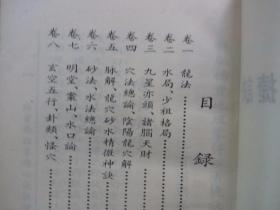 目錄
卷一 龍法
卷二 水局、少祖格局
卷三 九星亦頭諸腦天財
卷四 穴法總論、陰陽龍穴解
卷五 脉解、龍穴砂水精微神訣
卷六 砂法、水法總論
卷七 明堂、案山、水口論
卷八 玄空五行、卦類怪穴
捷訣